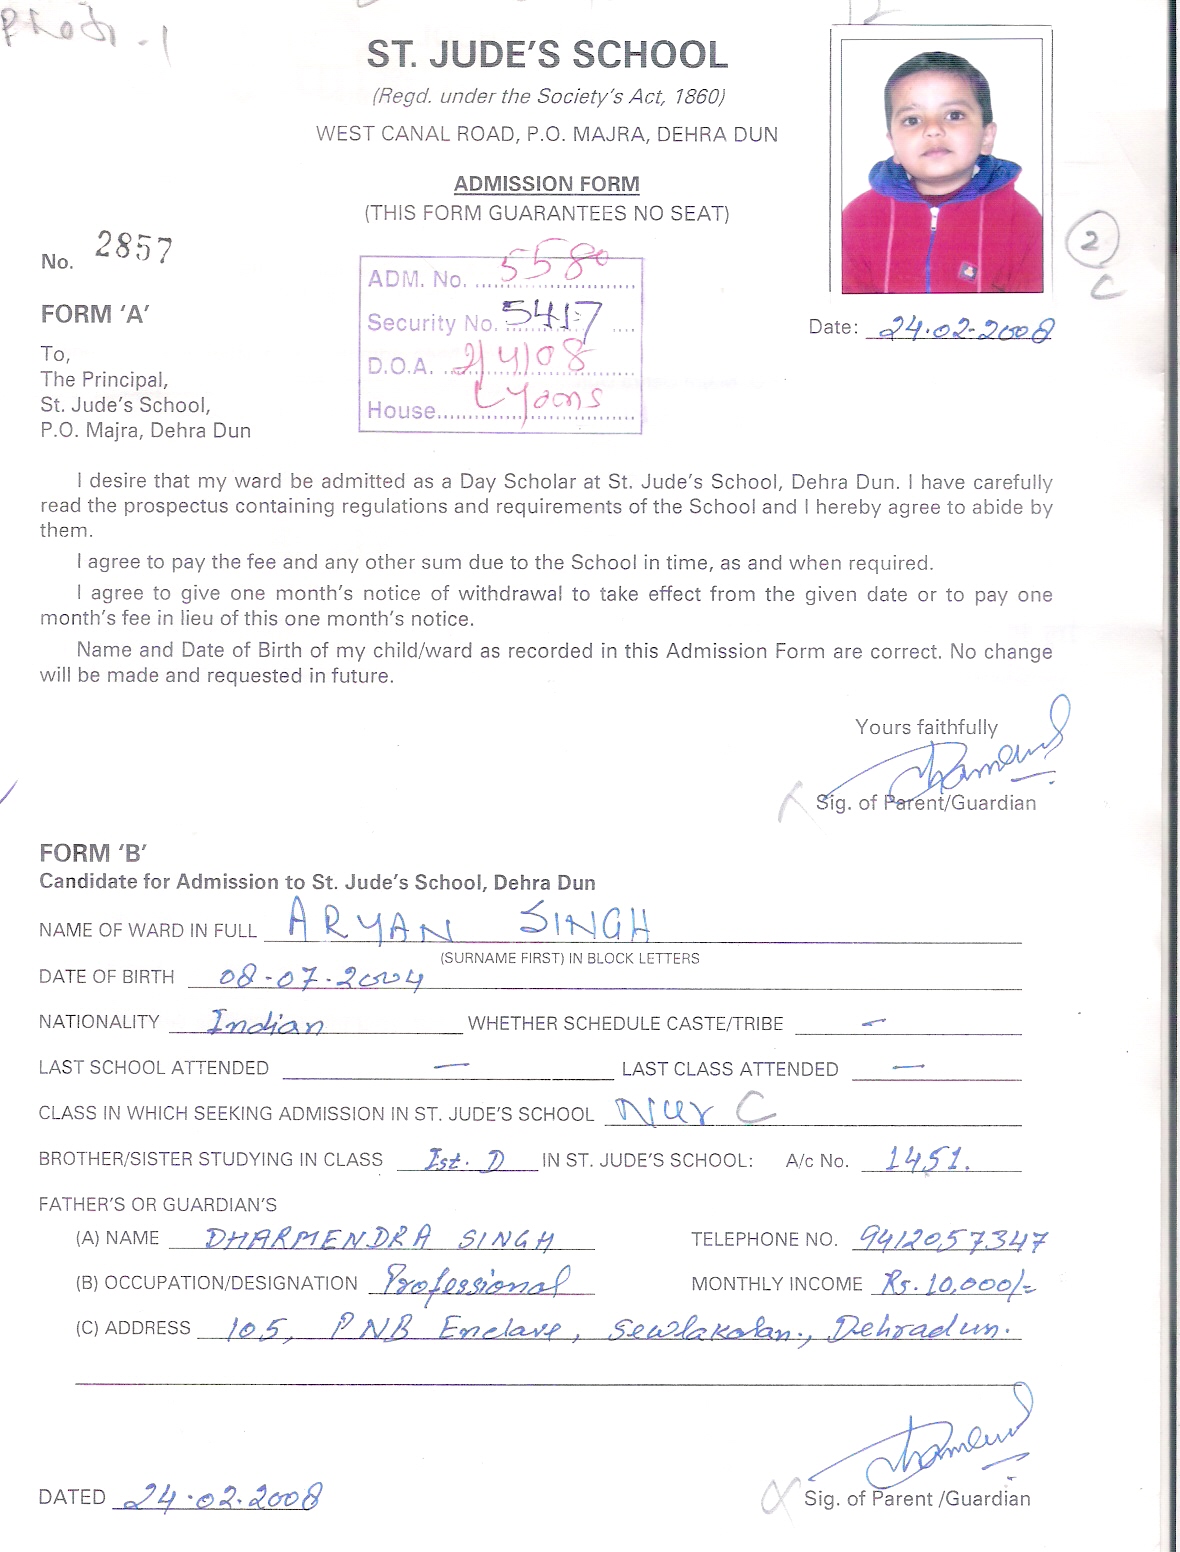 ST. JUDE'S SCHOOL
(Regd. under the Society's Act, 1860)
WEST CANAL ROAD, P.O. MAJRA, DEHRA DUN
ADMISSION FORM
(THIS FORM GUARANTEES NO SEAT)
No. 2857
2
C
ADM. No. 5580
Security No. 5417
D.O.A. 2/4/08
House Lyons
Date: 24.02-2008
FORM 'A'
To,
The Principal,
St. Jude's School,
P.O. Majra, Dehra Dun
I desire that my ward be admitted as a Day Scholar at St. Jude's School, Dehra Dun. I have carefully
read the prospectus containing regulations and requirements of the School and I hereby agree to abide by
them.
I agree to pay the fee and any other sum due to the School in time, as and when required.
I agree to give one month's notice of withdrawal to take effect from the given date or to pay one
month's fee in lieu of this one month's notice.
Name and Date of Birth of my child/ward as recorded in this Admission Form are correct. No change
will be made and requested in future.
Yours faithfully
Sig. of Parent/Guardian
FORM 'B'
Candidate for Admission to St. Jude's School, Dehra Dun
NAME OF WARD IN FULL ARYAN SINGH
(SURNAME FIRST) IN BLOCK LETTERS
DATE OF BIRTH 08-07-2004
NATIONALITY Indian WHETHER SCHEDULE CASTE/TRIBE —
LAST SCHOOL ATTENDED — LAST CLASS ATTENDED —
CLASS IN WHICH SEEKING ADMISSION IN ST. JUDE'S SCHOOL Nur C
BROTHER/SISTER STUDYING IN CLASS Ist. D IN ST. JUDE'S SCHOOL: A/c No. 1451.
FATHER'S OR GUARDIAN'S
(A) NAME DHARMENDRA SINGH TELEPHONE NO. 9412057347
(B) OCCUPATION/DESIGNATION Professional MONTHLY INCOME Rs. 10,000/-
(C) ADDRESS 105, PNB Enclave, Sewlakalan., Dehradun.
DATED 24.02.2008
Sig. of Parent /Guardian